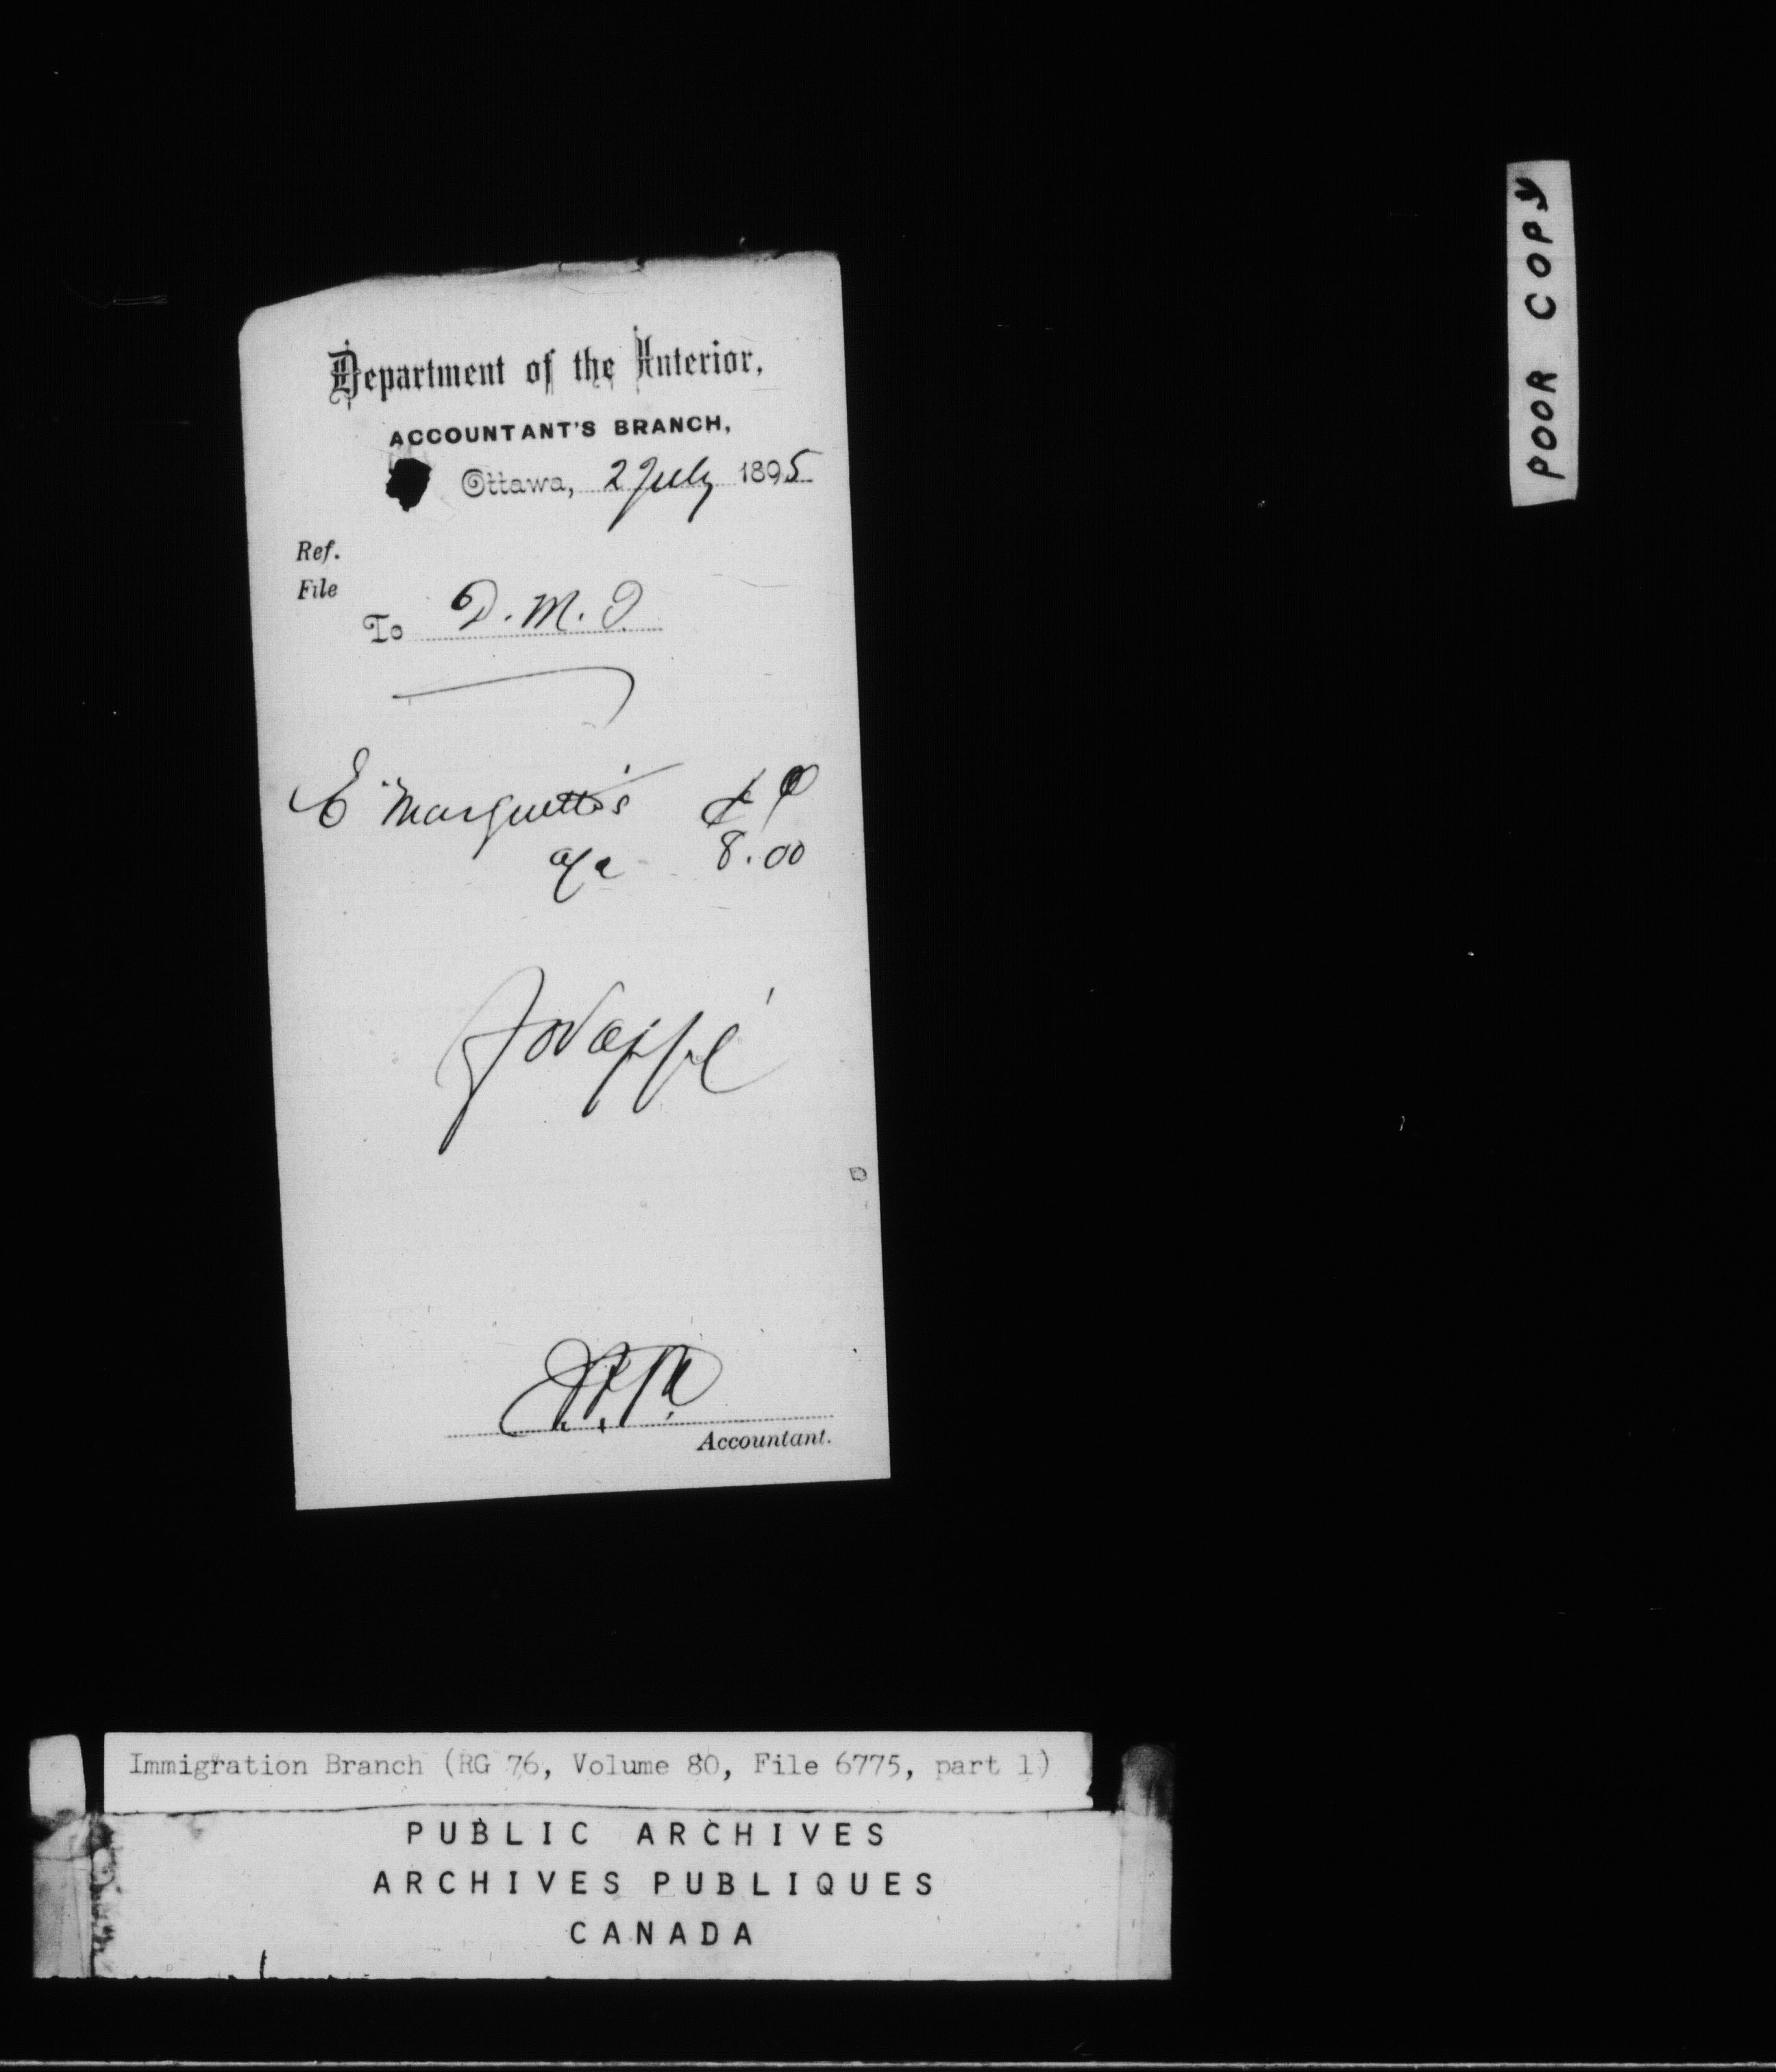 Department of the Interior,
ACCOUNTANT'S BRANCH,
Ottawa, 2 July 1895
Ref.
File
To D. M. I.
E Marquette's
a/c 8.00
Accountant.
POOR COPY
Immigration Branch (RG 76, Volume 80, File 6775, part 1)
PUBLIC ARCHIVES
ARCHIVES PUBLIQUES
CANADA